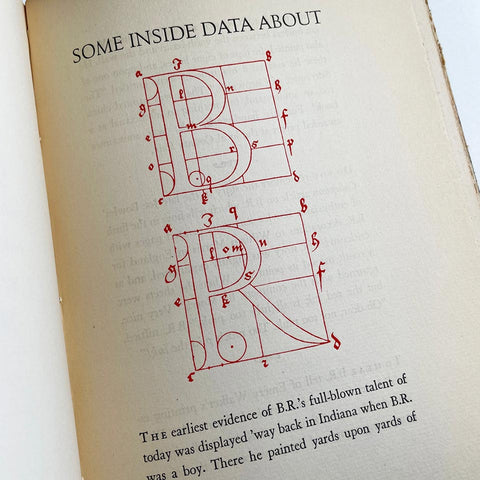 SOME INSIDE DATA ABOUT
a J b
g l n h
e m f
o r s p
c k q d
a J q b
g l o m n h
e k s f
c z d
THE earliest evidence of B.R.'s full-blown talent of
today was displayed 'way back in Indiana when B.R.
was a boy. There he painted yards upon yards of